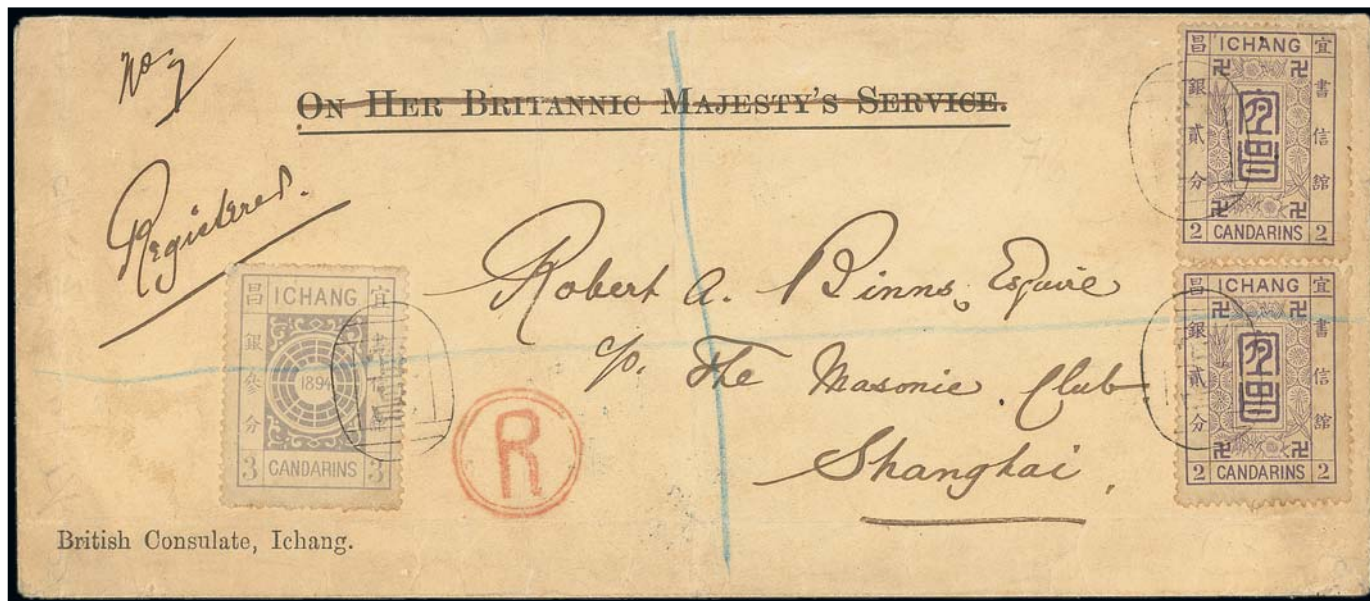 No 7
ON HER BRITANNIC MAJESTY'S SERVICE.
Registered.
Robert A. Binns, Esquire
c/o. The Masonic Club
Shanghai.
R
British Consulate, Ichang.
昌 ICHANG 宜
書信館
銀貳分
2 CANDARINS 2
昌 ICHANG 宜
書信館
銀貳分
2 CANDARINS 2
昌 ICHANG 宜
書信館
銀參分
1894
3 CANDARINS 3